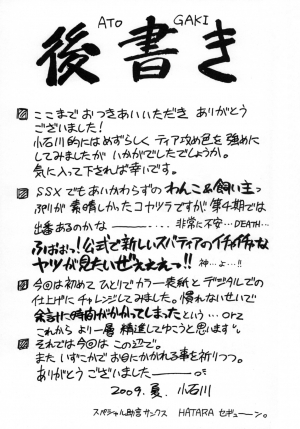 ATO GAKI
後書き
ここまでおつきあいいただきありがとう
ございました！
小石川的にはめずらしくティア攻め色を強めに
してみましたがいかがでしたでしょうか。
気に入って下されば幸いです。
SSXでもあいかわらずのわんこ&飼い主っ
ぷりが素晴しかったコヤツラですが、第4期では
出番あるのかな 非常に不安…DEATH…
ふおおっ！公式で新しいスパティアのイチャイチャな
ヤツが見たいぜえぇぇっ!! 神…よ…!!
今回は初めてひとりでカラー表紙とデジタルでの
仕上げにチャレンジしてみました。慣れないせいで
余計に時間がかかってしまったという…orz
これからより一層精進してゆこうと思います。
それでは今回はこの辺で。
また、いずこかでお目にかかれる事を祈りつつ。
ありがとうございました
2009.夏. 小石川
スペシャル助言サンクス HATARA セギューーン。